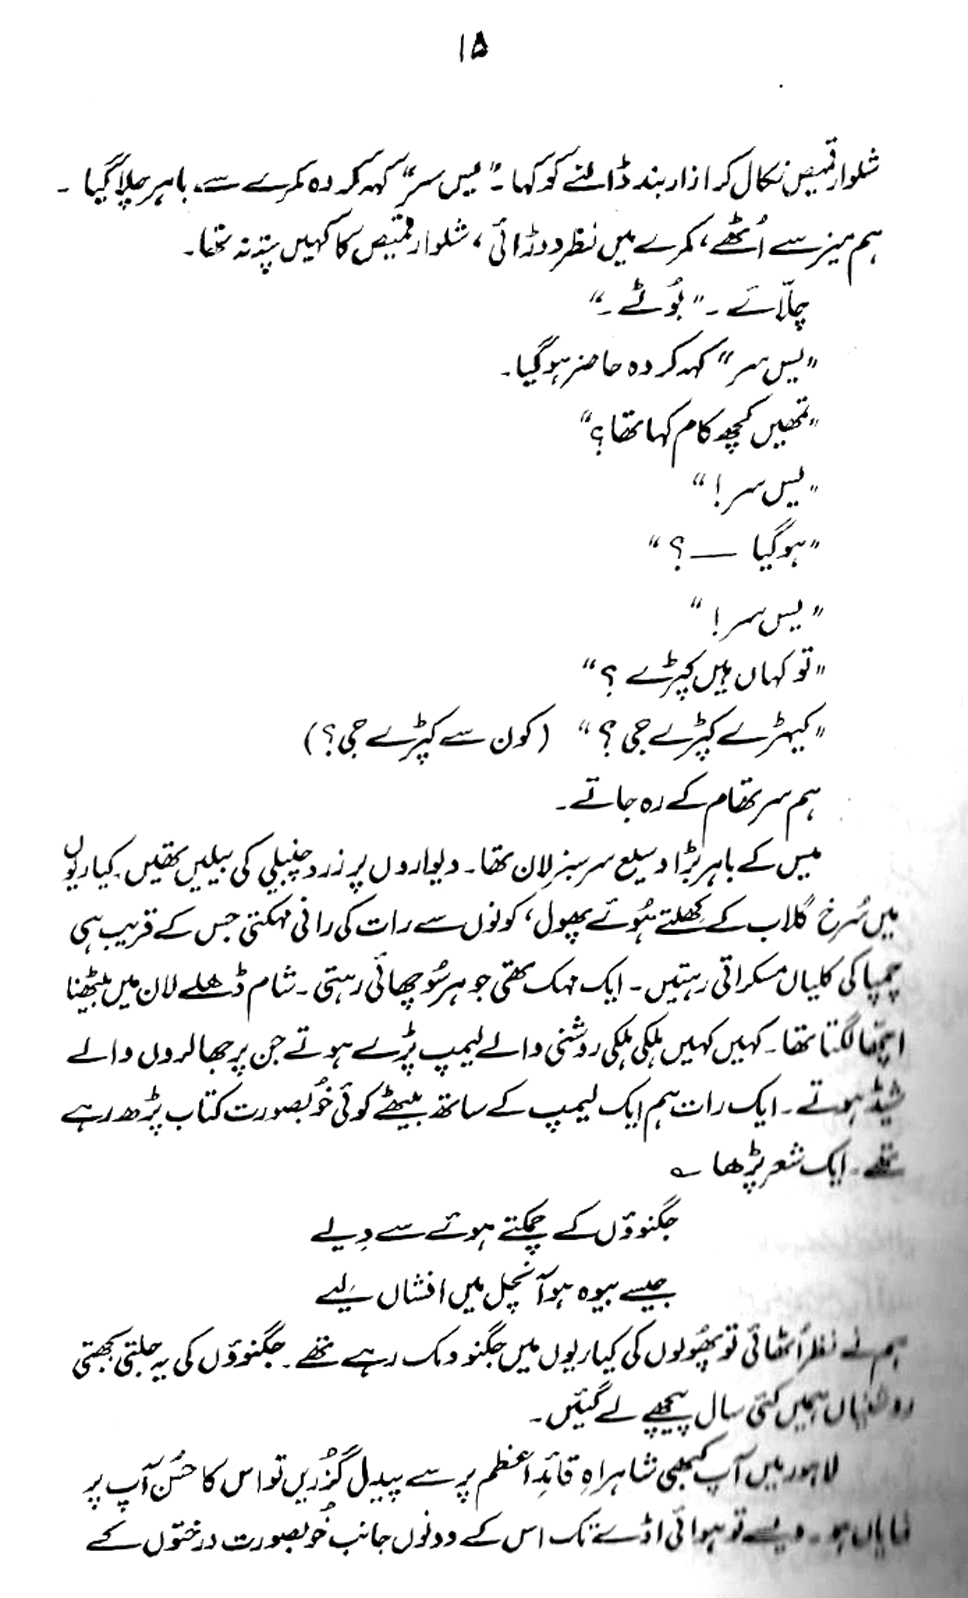 ۱۵
شلوار قمیص نکال کر ازار بند ڈالنے کو کہا۔ "یس سر" کہہ کر وہ کمرے سے باہر چلا گیا۔
ہم میز سے اُٹھے، کمرے میں نظر دوڑائی، شلوار قمیص کا کہیں پتہ نہ تھا۔
چلّائے۔ "بُوٹے۔"
"یس سر" کہہ کر وہ حاضر ہو گیا۔
"تمھیں کچھ کام کہا تھا؟"
"یس سر!"
"ہو گیا —؟"
"یس سر!"
"تو کہاں ہیں کپڑے؟"
"کیہڑے کپڑے جی؟" (کون سے کپڑے جی؟)
ہم سر تھام کے رہ جاتے۔
میس کے باہر بڑا وسیع سرسبز لان تھا۔ دیواروں پر زرد چنبیلی کی بیلیں تھیں۔ کیاریوں
میں سُرخ گلاب کے کھلتے ہُوئے پھول، کونوں سے رات کی رانی مہکتی جس کے قریب ہی
چمپا کی کلیاں مسکراتی رہتیں۔ ایک مہک تھی جو ہر سُو چھائی رہتی۔ شام ڈھلے لان میں بیٹھنا
اچھّا لگتا تھا۔ کہیں کہیں ہلکی ہلکی روشنی والے لیمپ پڑے ہوتے جن پر جھالروں والے
شیڈ ہوتے۔ ایک رات ہم ایک لیمپ کے ساتھ بیٹھے کوئی خُوبصورت کتاب پڑھ رہے
تھے۔ ایک شعر پڑھا ؎
جگنوؤں کے چمکتے ہوئے سے دِیے
جیسے بیوہ ہو آنچل میں افشاں لیے
ہم نے نظر اُٹھائی تو پھُولوں کی کیاریوں میں جگنو دمک رہے تھے۔ جگنوؤں کی یہ جلتی بجھتی
روشنیاں ہمیں کئی سال پیچھے لے گئیں۔
لاہور میں آپ کبھی شاہراہِ قائدِاعظم پر سے پیدل گزُریں تو اس کا حسُن آپ پر
نمایاں ہو۔ ویسے تو ہوائی اڈے تک اس کے دونوں جانب خُوبصورت درختوں کے